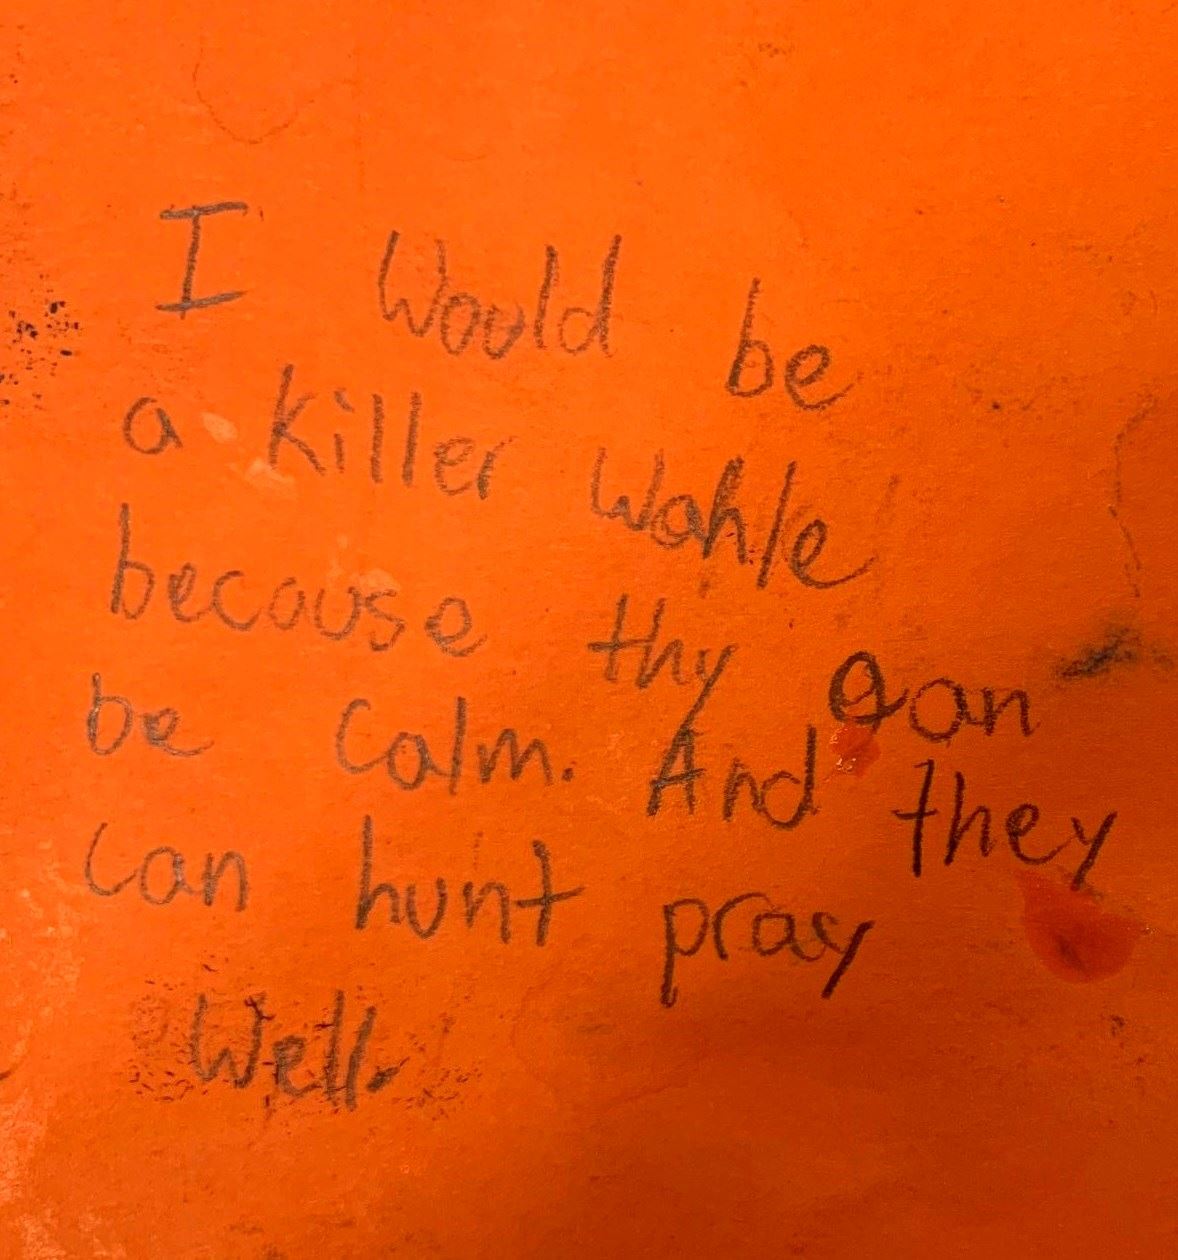 I Would be
a killer Wahle
because thy can
be calm. And they
can hunt pray
Well.